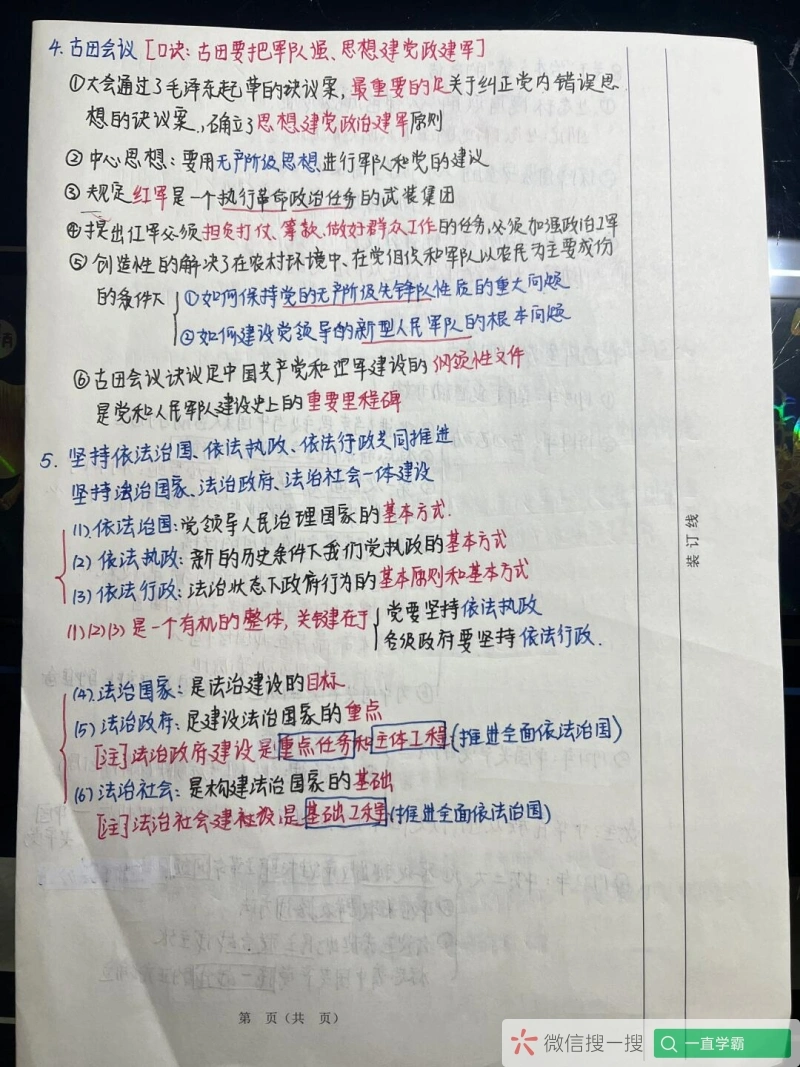 4. 古田会议 [口诀: 古田要把军队强、思想建党政建军]
①大会通过了毛泽东起草的决议案, 最重要的是关于纠正党内错误思
想的决议案, 确立了思想建党政治建军原则
② 中心思想: 要用无产阶级思想进行军队和党的建设
③ 规定红军是一个执行革命政治任务的武装集团
④提出红军必须担负打仗、筹款、做好群众工作的任务,必须加强政治工军
⑤ 创造性的解决了在农村环境中、在党组织和军队以农民为主要成份
的条件下
①如何保持党的无产阶级先锋队性质的重大问题
②如何建设党领导的新型人民军队的根本问题
⑥古田会议决议是中国共产党和红军建设的纲领性文件
是党和人民军队建设史上的重要里程碑
5. 坚持依法治国、依法执政、依法行政共同推进
坚持法治国家、法治政府、法治社会一体建设
(1).依法治国: 党领导人民治理国家的基本方式.
(2) 依法执政: 新的历史条件下我们党执政的基本方式
(3) 依法行政: 法治状态下政府行为的基本原则和基本方式
(1)(2)(3) 是一个有机的整体, 关键在于
党要坚持依法执政
各级政府要坚持依法行政.
(4).法治国家: 是法治建设的目标
(5) 法治政府: 是建设法治国家的重点
[注]法治政府建设是重点任务和主体工程(推进全面依法治国)
(6) 法治社会: 是构建法治国家的基础
[注]法治社会建社设是基础工程(推进全面依法治国)
装订线
第 页(共 页)
微信搜一搜 一直学霸